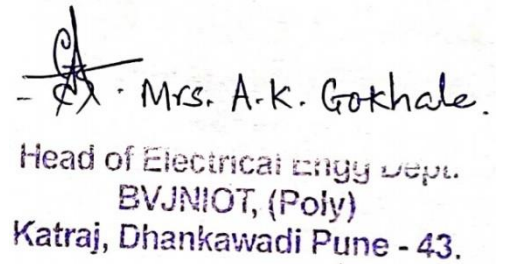 Mrs. A.K. Gokhale.
Head of Electrical Engg Dept.
BVJNIOT, (Poly)
Katraj, Dhankawadi Pune - 43.